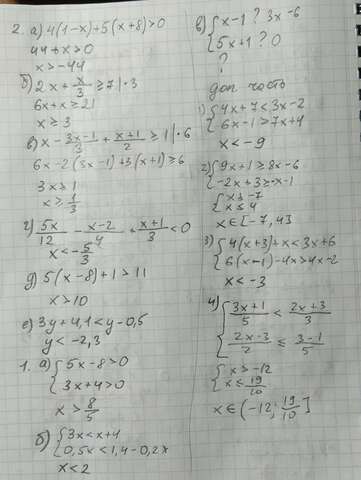 2. а) 4(1-x)+5(x+8)>0
44+x>0
x>-44
б) 2x+x/3≥7|·3
6x+x≥21
x≥3
в) x-(3x-1)/3+(x+1)/2≥1|·6
6x-2(3x-1)+3(x+1)≥6
3x≥1
x≥1/3
г) 5x/12-(x-2)/4+(x+1)/3<0
x<-5/3
д) 5(x-8)+1>11
x>10
е) 3y+4,1<y-0,5
y<-2,3
1. а) {5x-8>0
3x+4>0
x>8/5
б) {3x<x+4
0,5x<1,4-0,2x
x<2
в) {x-1 ? 3x-6
5x+1 ? 0
?
доп часть
1) {4x+7<3x-2
6x-1>7x+4
x<-9
2) {9x+1≥8x-6
-2x+3≥-x-1
{x≥-7
x≤4
x∈[-7,4]
3) {4(x+3)+x<3x+6
6(x-1)-4x>4x-2
x<-3
4) {(3x+1)/5<(2x+3)/3
(2x-3)/2≤(3-1)/5
{x>-12
x≤19/10
x∈(-12;19/10]